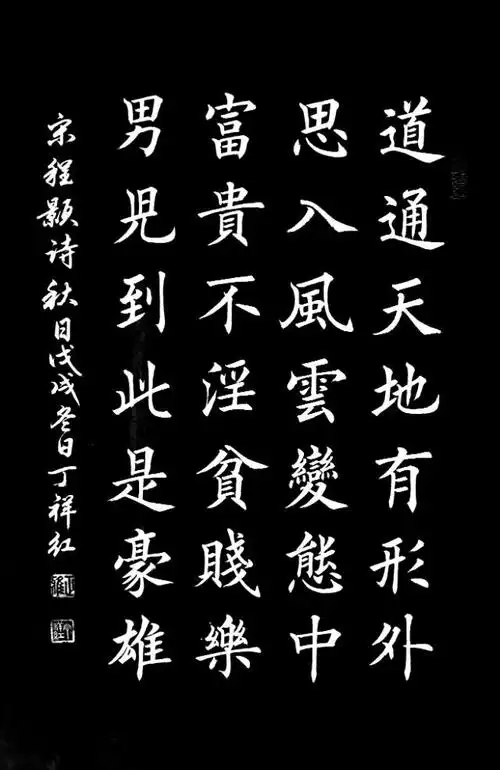 道通天地有形外
思入風雲變態中
富貴不淫貧賤樂
男児到此是豪雄
宋程颢诗秋日戊戌冬日丁祥红